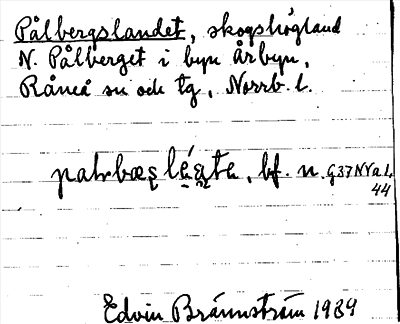 Pålbergslandet, skogshögland
N. Pålberget i byn Årbyn,
Råneå sn och tg, Norrb. l.
bf. n. G37NVa L
44
Edvin Brännström 1989